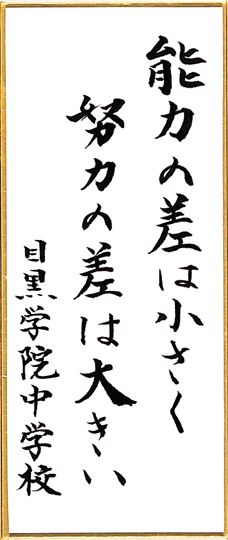 能力の差は小さく
努力の差は大きい
目黒学院中学校